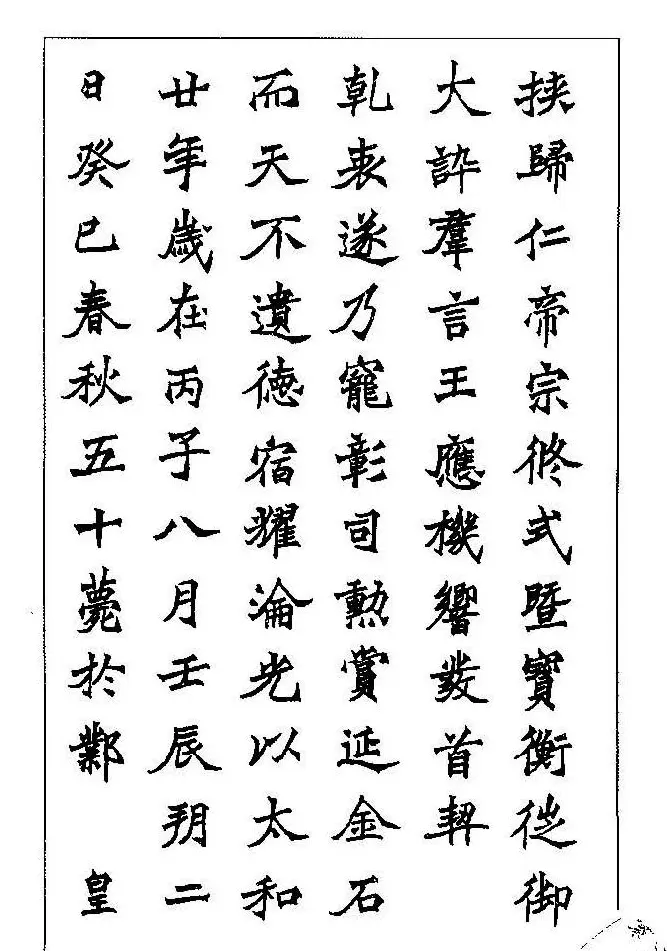 族歸仁帝宗攸式暨寶衡徙御
大訊羣言王應機響發首契
乾衷遂乃寵彰司勳賞延金石
而天不遺德宿耀淪光以太和
廿年歲在丙子八月壬辰朔二
日癸巳春秋五十薨於鄴 皇